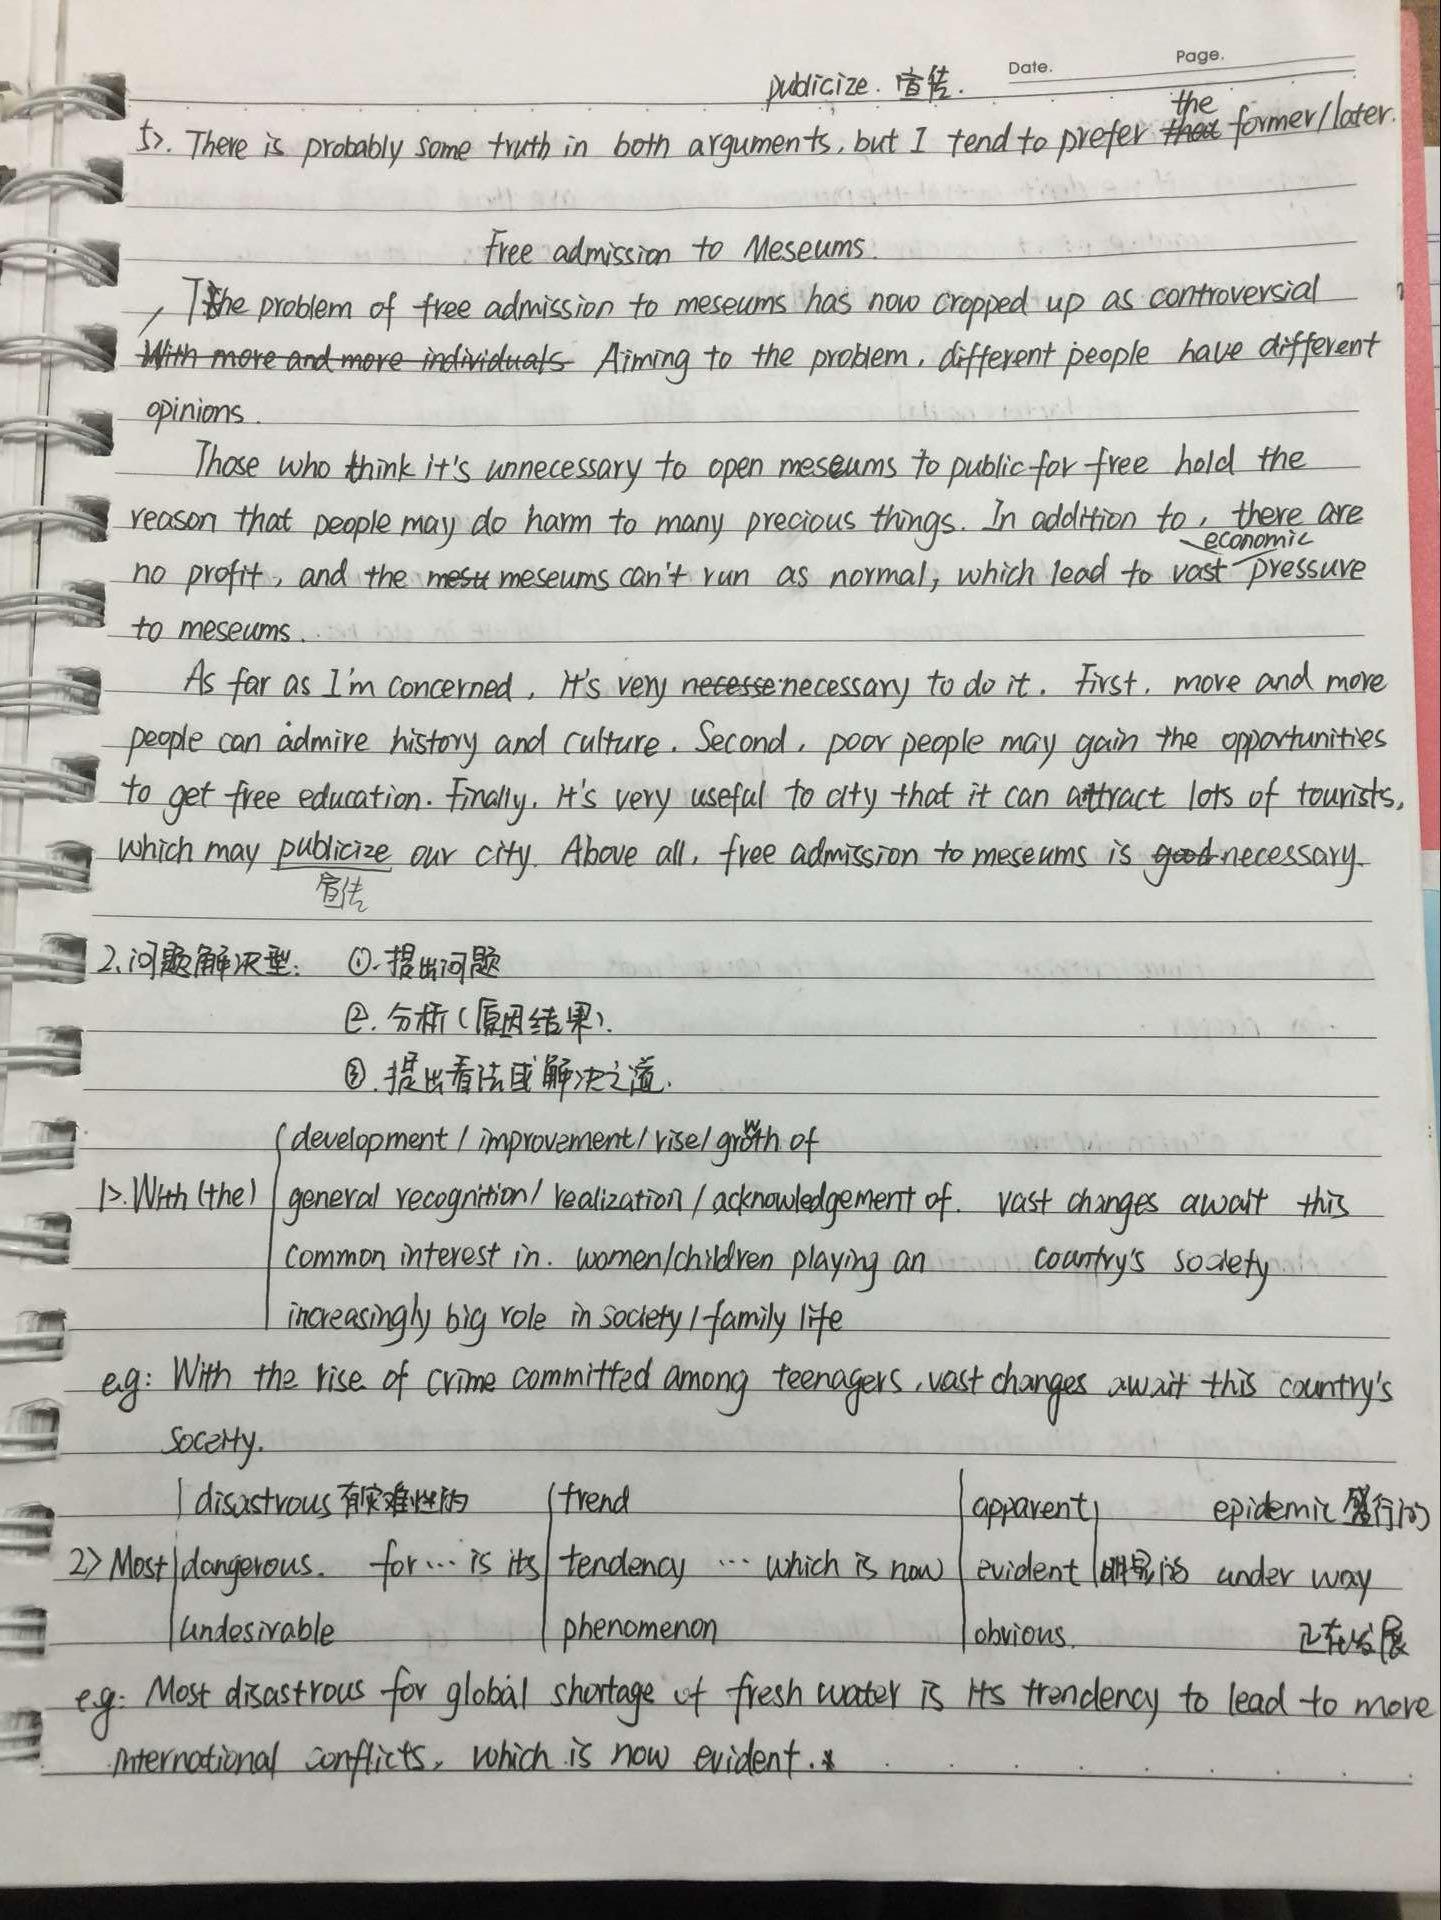 Date. Page.
publicize. 宣传.
the
5>. There is probably some truth in both arguments, but I tend to prefer that former/later.
Free admission to Meseums.
The problem of free admission to meseums has now cropped up as controversial
With more and more individuals Aiming to the problem, different people have different
opinions.
Those who think it's unnecessary to open meseums to public for free hold the
reason that people may do harm to many precious things. In addition to, there are
economic
no profit, and the mesu meseums can't run as normal, which lead to vast pressure
to meseums.
As far as I'm concerned, it's very necesse necessary to do it. First, more and more
people can admire history and culture. Second, poor people may gain the opportunities
to get free education. Finally, it's very useful to city that it can attract lots of tourists,
which may publicize our city. Above all, free admission to meseums is good necessary.
宣传
2.问题解决型: ①.提出问题
②.分析(原因结果).
③.提出看法或解决之道.
development / improvement / rise / growth of
1>. With (the) general recognition / realization / acknowledgement of. vast changes await this
common interest in. women/children playing an country's society
increasingly big role in society / family life
e.g: With the rise of crime committed among teenagers, vast changes await this country's
socety.
disastrous 有灾难性的 trend apparent epidemic 盛行的
2> Most dangerous. for ... is its tendency ... which is now evident 明显的 under way
undesirable phenomenon obvious. 正在发展
e.g: Most disastrous for global shortage of fresh water is its trendency to lead to more
international conflicts, which is now evident.